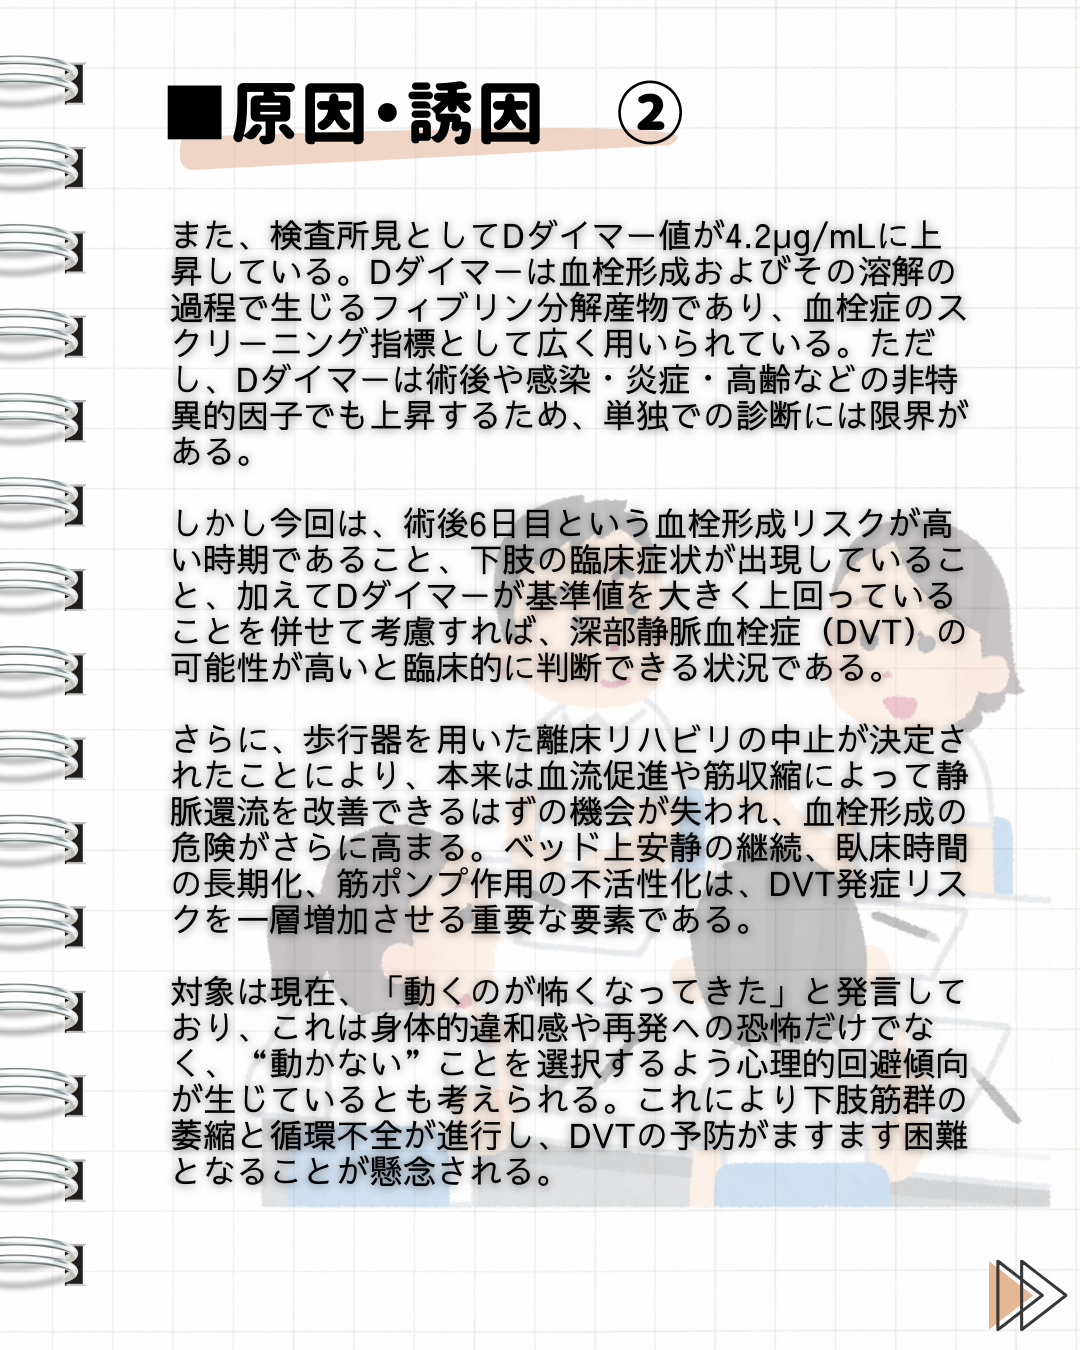 ■原因・誘因 ②
また、検査所見としてDダイマー値が4.2μg/mLに上
昇している。Dダイマーは血栓形成およびその溶解の
過程で生じるフィブリン分解産物であり、血栓症のス
クリーニング指標として広く用いられている。ただ
し、Dダイマーは術後や感染・炎症・高齢などの非特
異的因子でも上昇するため、単独での診断には限界が
ある。
しかし今回は、術後6日目という血栓形成リスクが高
い時期であること、下肢の臨床症状が出現しているこ
と、加えてDダイマーが基準値を大きく上回っている
ことを併せて考慮すれば、深部静脈血栓症（DVT）の
可能性が高いと臨床的に判断できる状況である。
さらに、歩行器を用いた離床リハビリの中止が決定さ
れたことにより、本来は血流促進や筋収縮によって静
脈還流を改善できるはずの機会が失われ、血栓形成の
危険がさらに高まる。ベッド上安静の継続、臥床時間
の長期化、筋ポンプ作用の不活性化は、DVT発症リス
クを一層増加させる重要な要素である。
対象は現在、「動くのが怖くなってきた」と発言して
おり、これは身体的違和感や再発への恐怖だけでな
く、“動かない”ことを選択するよう心理的回避傾向
が生じているとも考えられる。これにより下肢筋群の
萎縮と循環不全が進行し、DVTの予防がますます困難
となることが懸念される。